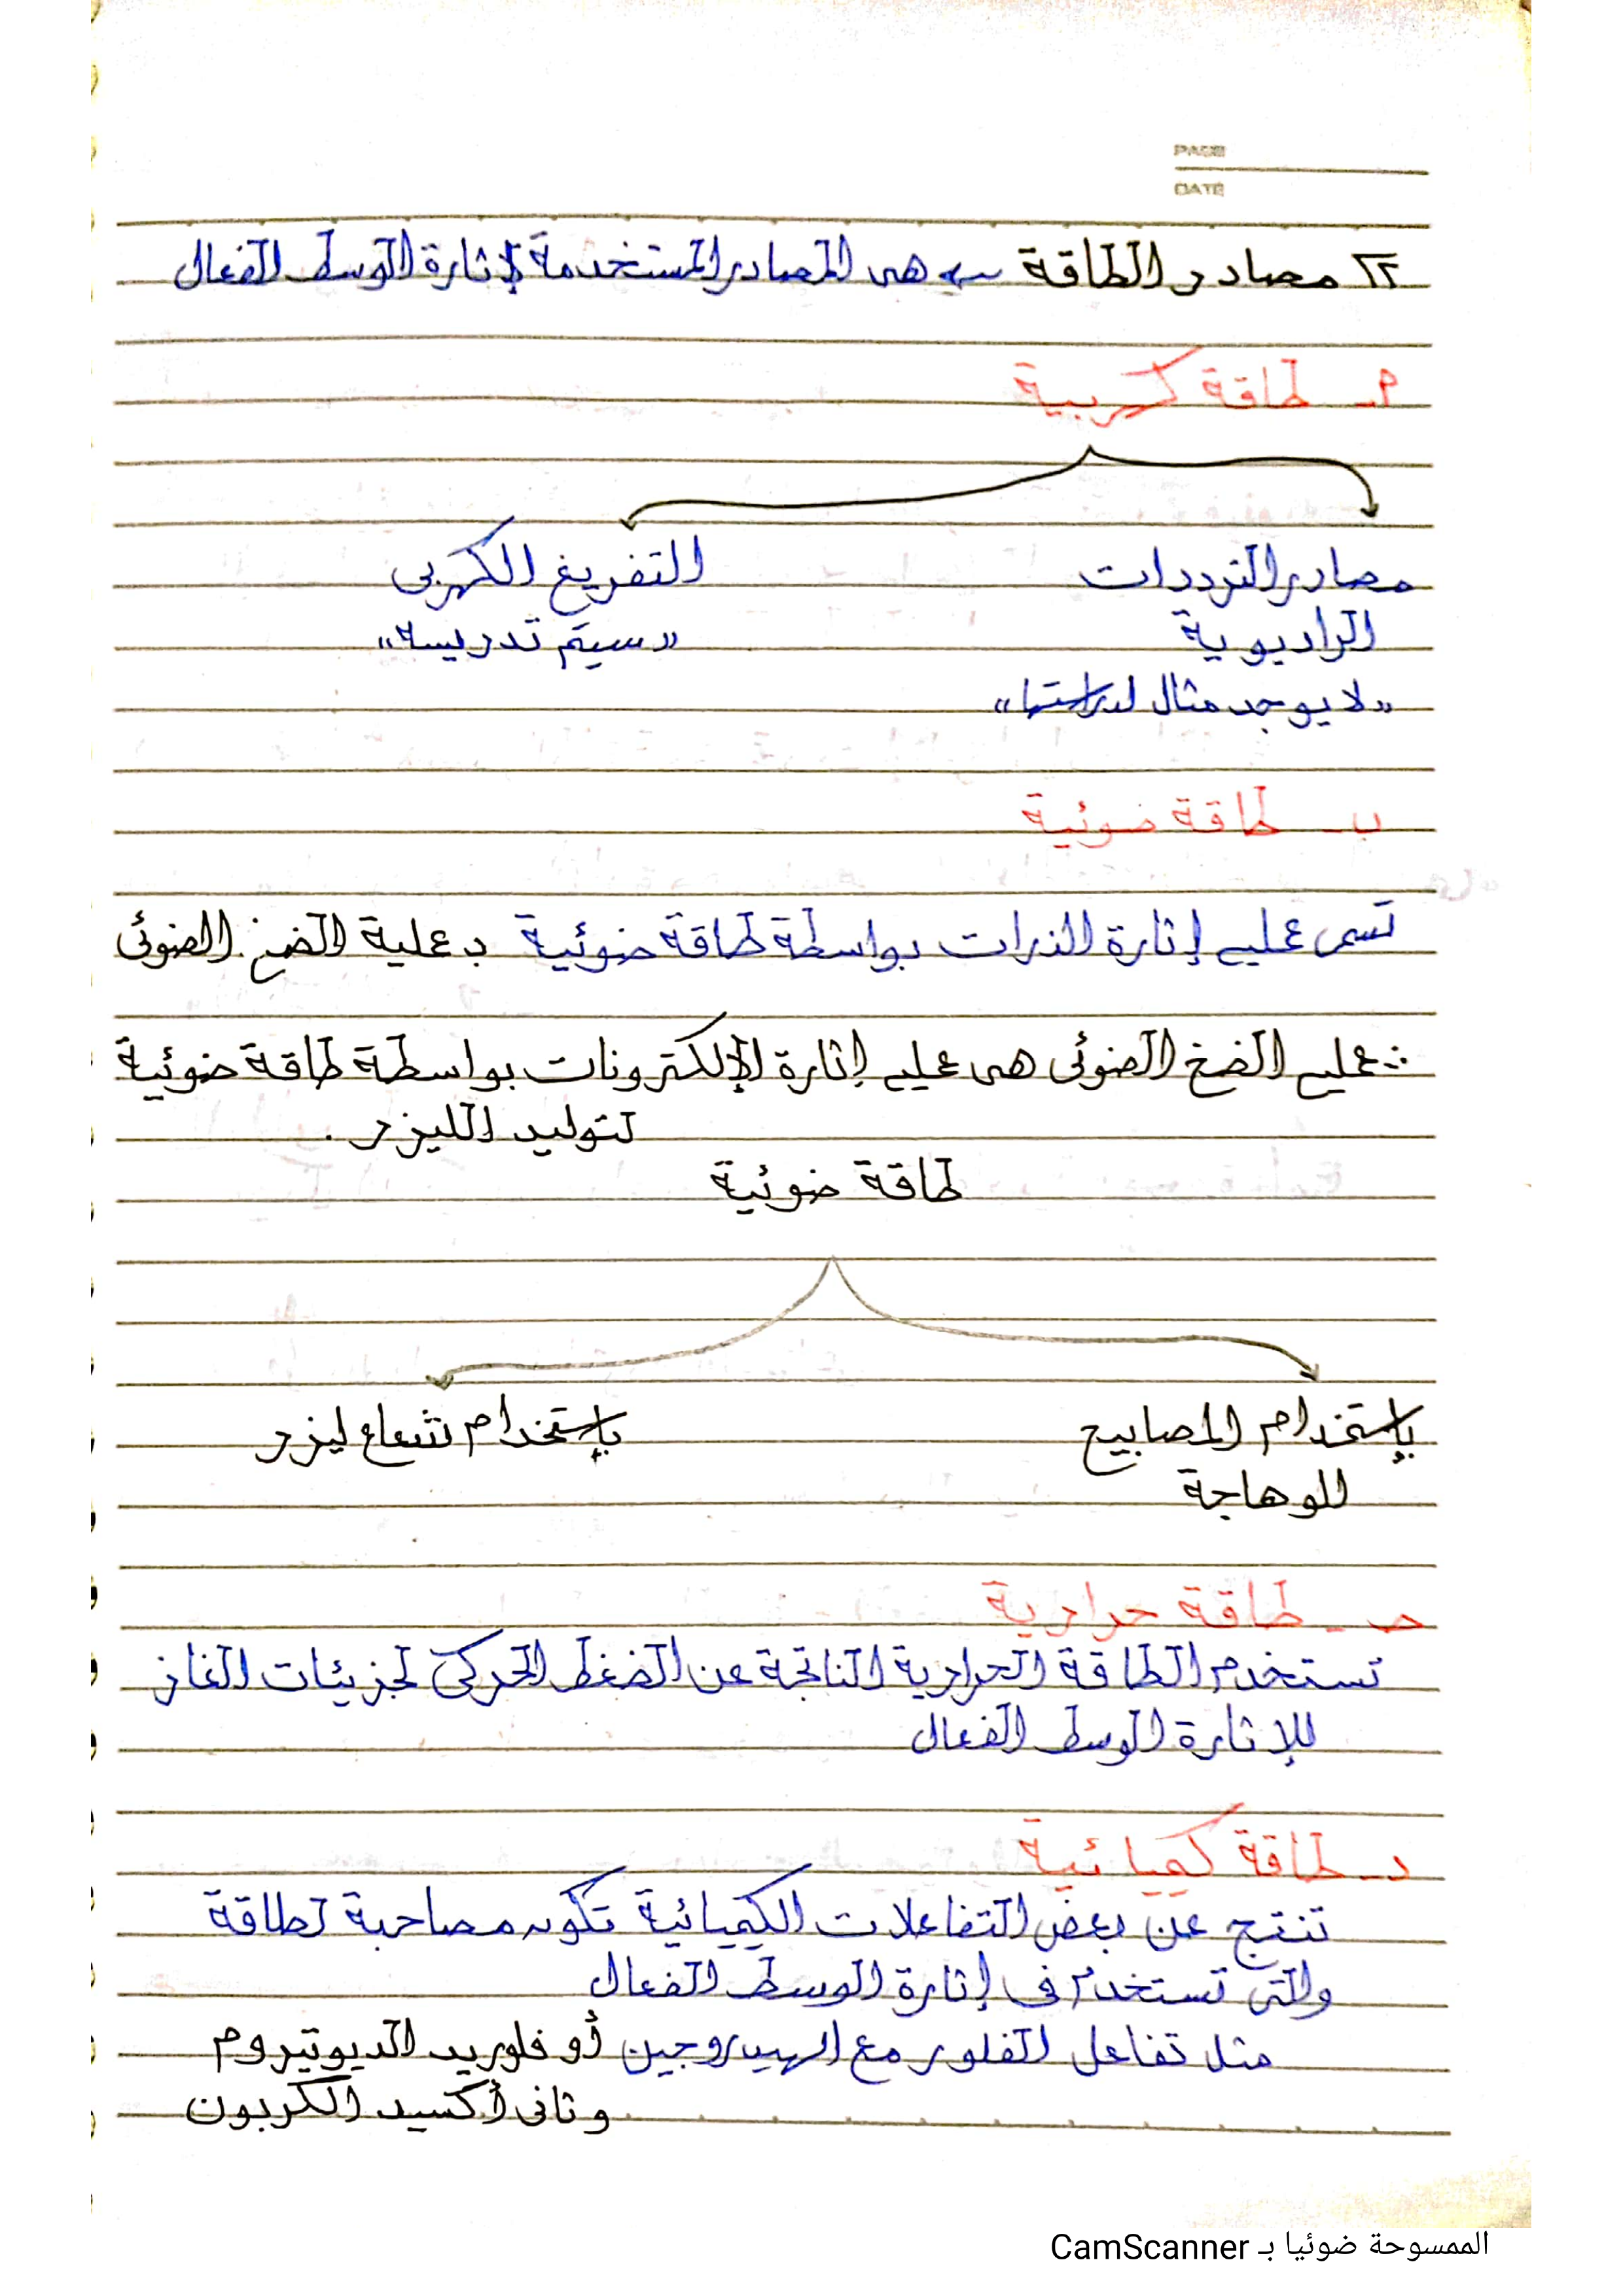 PAGE
DATE
٢] مصادر الطاقة ← هى المصادر المستخدمة لإثارة الوسط الفعال
أ - طاقة كهربية
مصادر الترددات    التفريغ الكهربى
الراديوية    «سيتم تدريسه»
«لا يوجد مثال لدراستها»
ب - طاقة ضوئية
تسمى عمليه إثارة الذرات بواسطة طاقة ضوئية بـ عملية الضخ الضوئى
∴ عمليه الضخ الضوئى هى عمليه إثارة الإلكترونات بواسطة طاقة ضوئية
لتوليد الليزر.
طاقة ضوئية
بإستخدام المصابيح    بإستخدام شعاع ليزر
للوهاجة
حـ - طاقة حرارية
تستخدم الطاقة الحرارية الناتجة عن الضغط الحركى لجزيئات الغاز
للإثارة الوسط الفعال
د - طاقة كميائية
تنتج عن بعض التفاعلات الكميائية تكون مصاحبة لطاقة
والتى تستخدم فى إثارة الوسط الفعال
مثل تفاعل الفلور مع الهيدروجين أو فلوريد الديوتيروم
وثانى أكسيد الكربون
الممسوحة ضوئيا بـ CamScanner